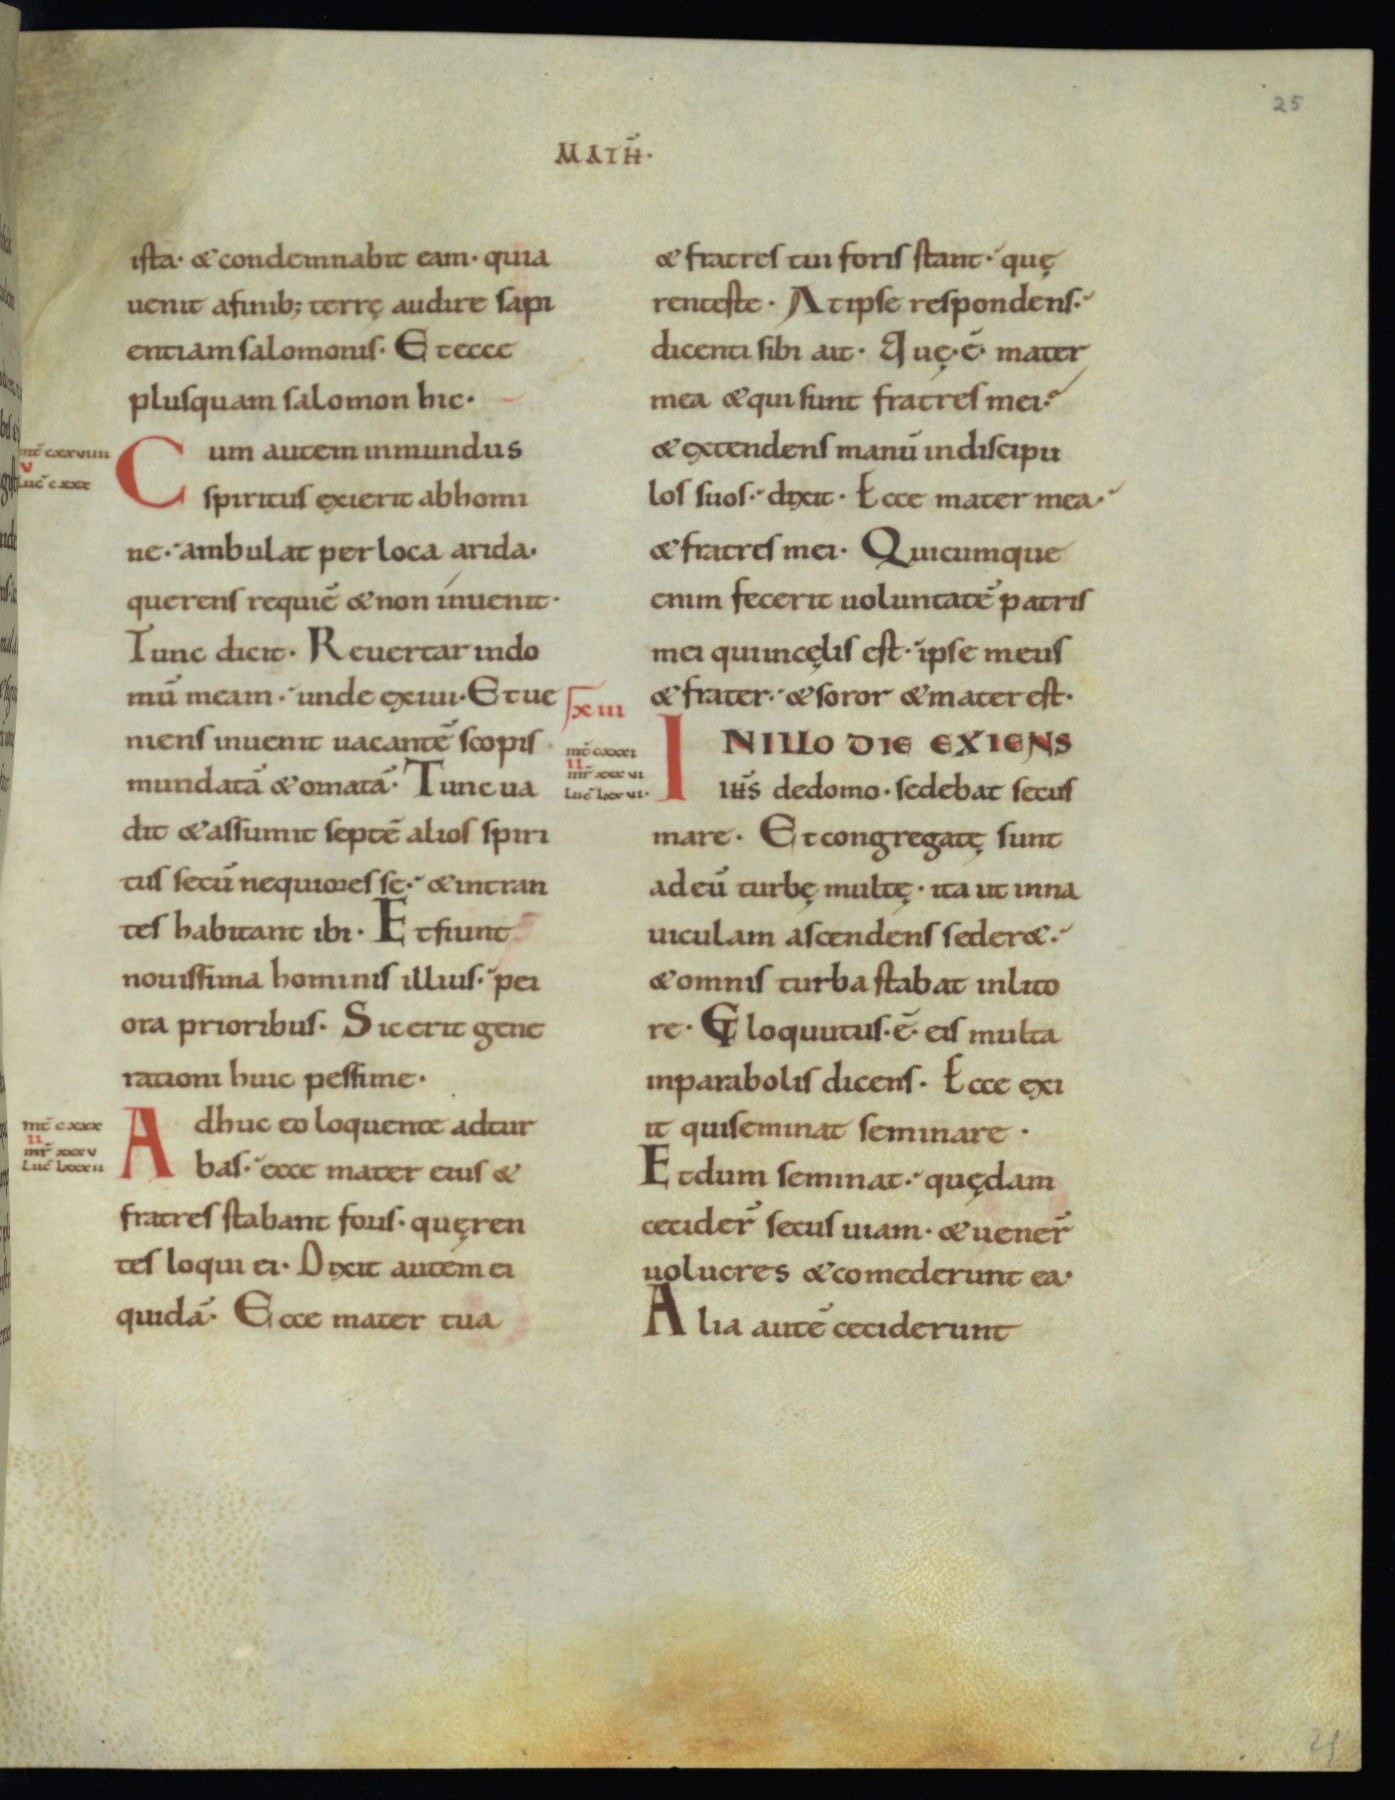 25
MATH̄·
ista· & condemnabit eam· quia
uenit afinib; terrę audire sapi
entiam salomonis· Et ecce
plusquam salomon hic·
mt̄ cxxviiii
v
Luc̄ cxxx
Cum autem inmundus
spiritus exierit ab homi
ne· ambulat per loca arida·
querens requiē & non inuenit·
Tunc dicit· Reuertar in do
mū meam· unde exiui· Et ue
niens inuenit uacantē scopis
mundatā & ornatā· Tunc ua
dit & assumit septē alios spiri
tus secū nequiores se· & intran
tes habitant ibi· Et fiunt
nouissima hominis illius· pei
ora prioribus· Sic erit gene
rationi huic pessime·
mt̄ cxxx
ii
mr̄ xxxv
Luc̄ Lxxxii
Adhuc eo loquente ad tur
bas· ecce mater eius &
fratres stabant foris· quęren
tes loqui ei· Dixit autem ei
quidā· Ecce mater tua
& fratres tui foris stant· quę
rentes te· At ipse respondens·
dicenti sibi ait· Quę· ē· mater
mea & qui sunt fratres mei·
& extendens manū in discipu
los suos· dixit· Ecce mater mea·
& fratres mei· Quicumque
enim fecerit uoluntatē patris
mei qui in cęlis est· ipse meus
& frater· & soror & mater est·
xiii
mt̄ cxxxi
ii
mr̄ xxxvi
Luc̄ Lxxvi·
IN ILLO DIE EXIENS
ih̄s de domo· sedebat secus
mare· Et congregatę sunt
ad eū turbę multę· ita ut in na
uiculam ascendens seder&·
& omnis turba stabat in lito
re· Et loquutus· ē· eis multa
in parabolis dicens· Ecce exi
it qui seminat seminare·
Et dum seminat· quędam
cecider̄ secus uiam· & uener̄
uolucres & comederunt ea·
Alia autē ceciderunt